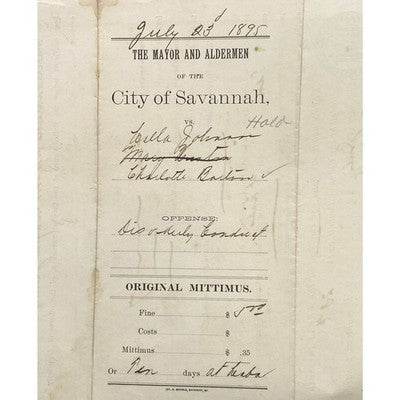 July 23d 1895
THE MAYOR AND ALDERMEN
OF THE
City of Savannah,
vs. Hold
Cella Johnson
Mary
Charlotte Barton
OFFENSE:
Disorderly Conduct
ORIGINAL MITTIMUS.
Fine $ 5.00
Costs $
Mittimus $ .35
Or Ten days at